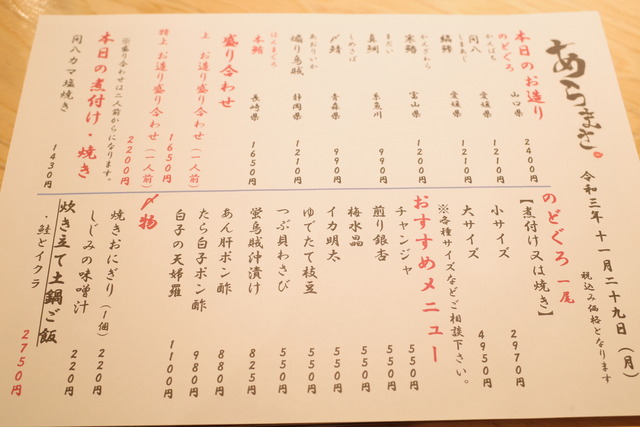 あらまさ
令和三年 十一月二十九日（月）
税込み価格となります
本日のお造り
のどぐろ 山口県 2400円
かんぱち
間八 愛媛県 1210円
しまあじ
縞鯵 愛媛県 1210円
かんざわら
寒鰆 富山県 1200円
まだい
真鯛 糸魚川 990円
しめさば
〆鯖 青森県 990円
あおりいか
煽り烏賊 静岡県 1210円
ほんまぐろ
本鮪 長崎県 1650円
盛り合わせ
上 お造り盛り合わせ（一人前）
1650円
特上 お造り盛り合わせ（一人前）
2200円
※盛り合わせは二人前からになります。
本日の煮付け・焼き
間八カマ塩焼き 1430円
のどぐろ 一尾
【煮付け又は焼き】
小サイズ 2970円
大サイズ 4950円
※各種サイズなどご相談下さい。
おすすめメニュー
チャンジャ 550円
煎り銀杏 550円
梅水晶 550円
イカ明太 550円
ゆでたて枝豆 550円
つぶ貝わさび 550円
蛍烏賊沖漬け 825円
あん肝ポン酢 880円
たら白子ポン酢 980円
白子の天婦羅 1100円
〆物
焼きおにぎり（1個） 220円
しじみの味噌汁 220円
炊き立て土鍋ご飯
・鮭とイクラ 2750円